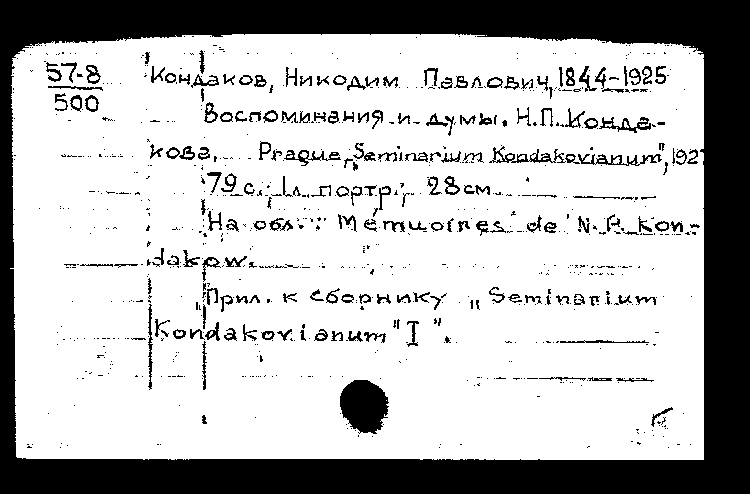 57-8
500
Кондаков, Никодим Павлович, 1844-1925
Воспоминания и думы. Н.П. Конда-
кова. Prague, „Seminarium Kondakovianum", 1927
79 с., 1 л. портр.; 28 см.
На обл.: Memuoires de N. P. Kon-
dakow.
„Прил. к сборнику „Seminarium
Kondakovianum" I".